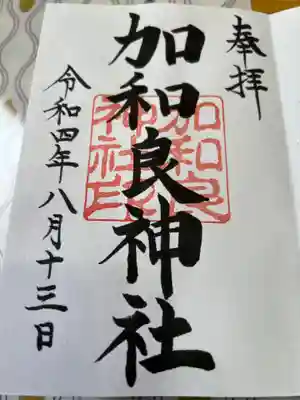 奉拝
加和良神社
加和良
神社印
令和四年八月十三日